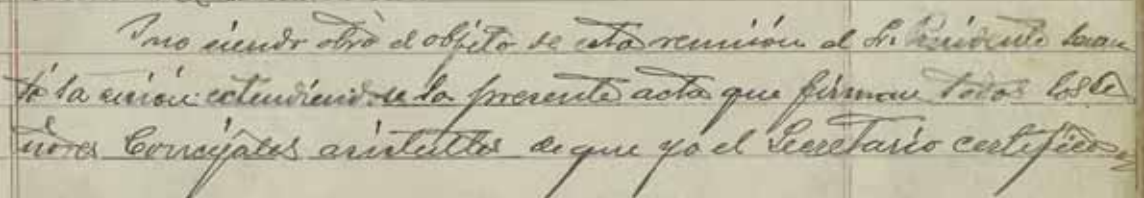 Y no siendo otro el objeto de esta reunión el Sr. Presidente levan
tó la sesión extendiendose la presente acta que firman todos los Se
ñores Concejales asistentes de que yo el Secretario certifico